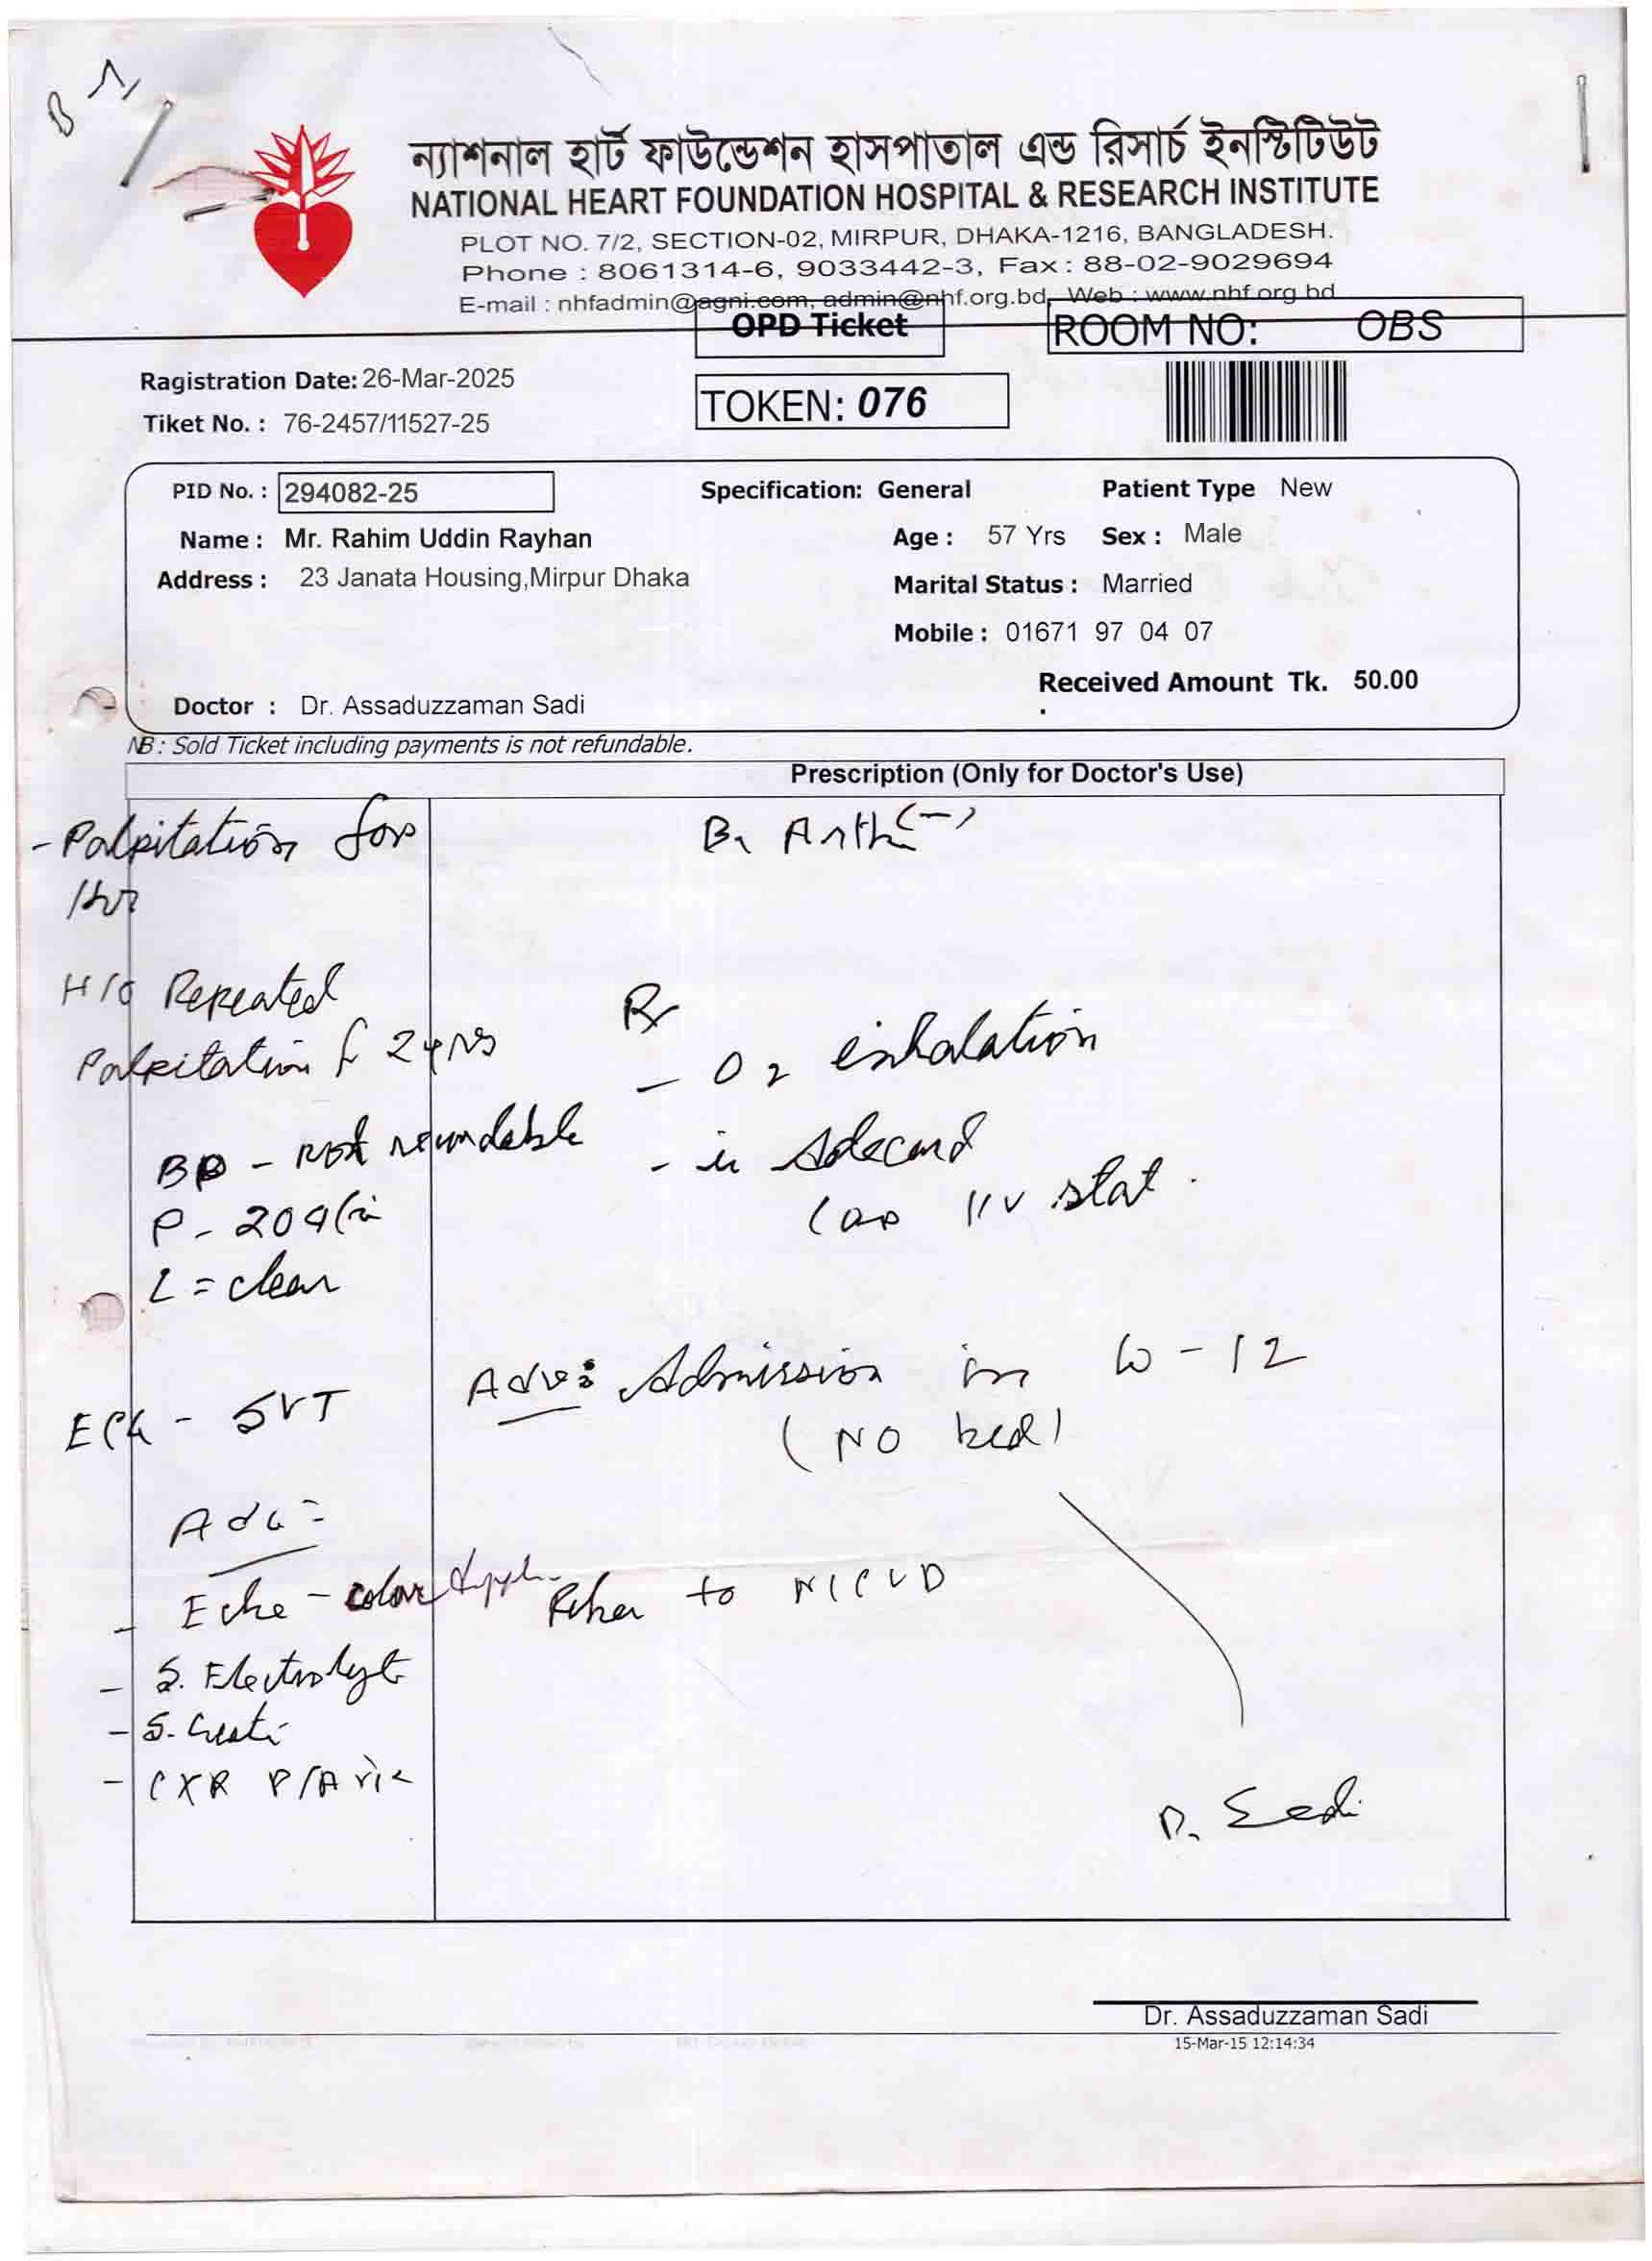 ন্যাশনাল হার্ট ফাউন্ডেশন হাসপাতাল এন্ড রিসার্চ ইনস্টিটিউট
NATIONAL HEART FOUNDATION HOSPITAL & RESEARCH INSTITUTE
PLOT NO. 7/2, SECTION-02, MIRPUR, DHAKA-1216, BANGLADESH.
Phone : 8061314-6, 9033442-3, Fax : 88-02-9029694
E-mail : nhfadmin@agni.com, admin@nhf.org.bd, Web : www.nhf.org.bd
OPD Ticket
ROOM NO: OBS
Ragistration Date: 26-Mar-2025
TOKEN: 076
Tiket No. : 76-2457/11527-25
PID No. : 294082-25 Specification: General Patient Type New
Name : Mr. Rahim Uddin Rayhan Age : 57 Yrs Sex : Male
Address : 23 Janata Housing,Mirpur Dhaka Marital Status : Married
Mobile : 01671 97 04 07
Received Amount Tk. 50.00
Doctor : Dr. Assaduzzaman Sadi
NB : Sold Ticket including payments is not refundable.
Prescription (Only for Doctor's Use)
- Palpitation for
1hr
H/O Repeated
Palpitation 2 yrs
BP - not
P - 204
L = clear
ECG - SVT
Adv:
- Echo - color
- S. Electrolyt
- S.
- CXR P/A
(-)
Rx
- O2 inhalation
-
I/V stat.
Adv: Admission in W - 12
(NO bed)
Refer to NICVD
Dr. Sadi
Dr. Assaduzzaman Sadi
15-Mar-15 12:14:34